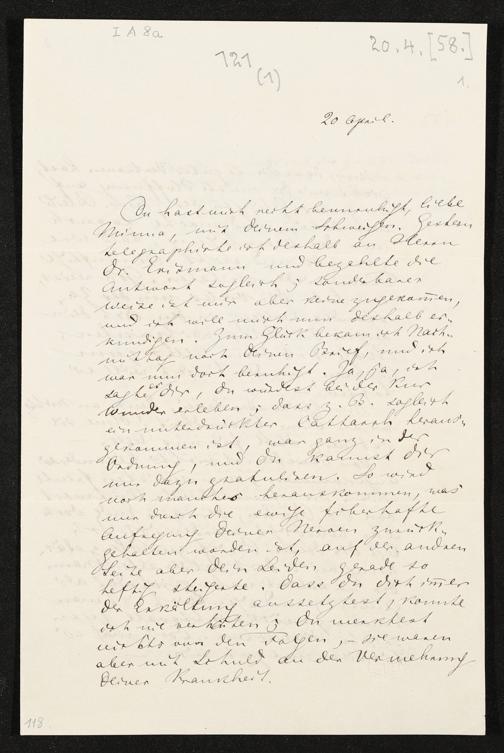 I A 8a
20.4.[58.]
121
(1)
1.
20 April.
Du hast mich recht beunruhigt, liebe
Minna, mit deinem Schweigen. Gestern
telegraphirte ich deshalb an Herrn
Dr. Erismann und bezahlte die
Antwort sogleich; sonderbarer
weise ist mir aber keine zugekommen,
und ich will mich nun deshalb er-
kundigen. Zum Glück bekam ich Nach-
mittag noch deinen Brief, und ich
war nun doch beruhigt. Ja, ja, ich
sagte dir, du würdest bei der Kur
Wunder erleben; dass z. B. sogleich
ein unterdrückter Catharrh heraus-
gekommen ist, war ganz in der
Ordnung, und du kannst dir
nur dazu gratuliren. So wird
noch manches herauskommen, was
nur durch die ewige fieberhafte
Aufregung deiner Nerven zurück-
gehalten worden ist, auf der andren
Seite aber dein Leiden gerade so
heftig steigerte. Dass du dich immer
der Erkältung aussetztest, konnte
ich nie verhüten; du merktest
nichts von den Folgen, – sie waren
aber mit Schuld an der Vermehrung
deiner Krankheit.
118